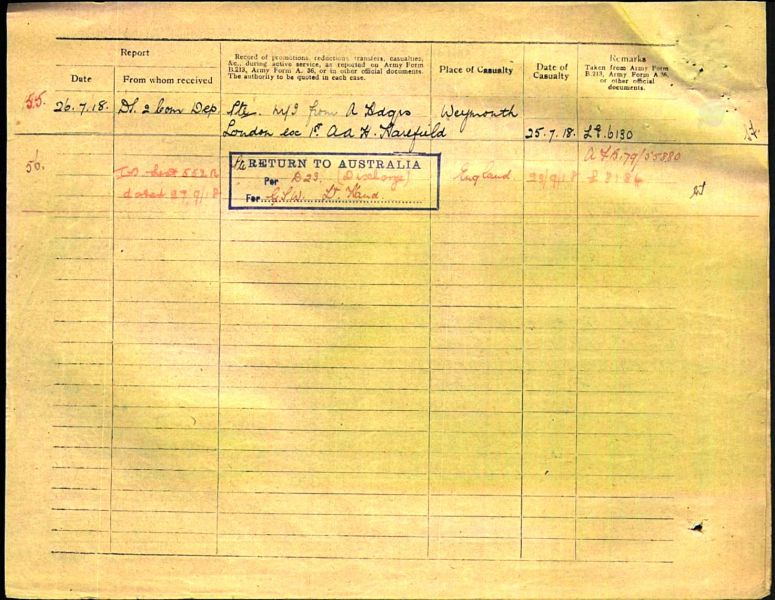 Report
Date
From whom received
Record of promotions, reductions, transfers, casualties,
&c., during active service, as reported on Army Form
B.213, Army Form A. 36, or in other official documents.
The authority to be quoted in each case.
Place of Casualty
Date of
Casualty
Remarks
Taken from Army Form
B.213, Army Form A.36,
or other official
documents.
55.
26.7.18.
2 Com Dep
Pte. from A Hdqrs Weymouth
London ex 1st A A H. Harefield
25.7.18.
6130
56.
dated 27/9/18
RETURN TO AUSTRALIA
Per D23. (Discharge)
For G.S.W. Lt. Hand
England
179/55880